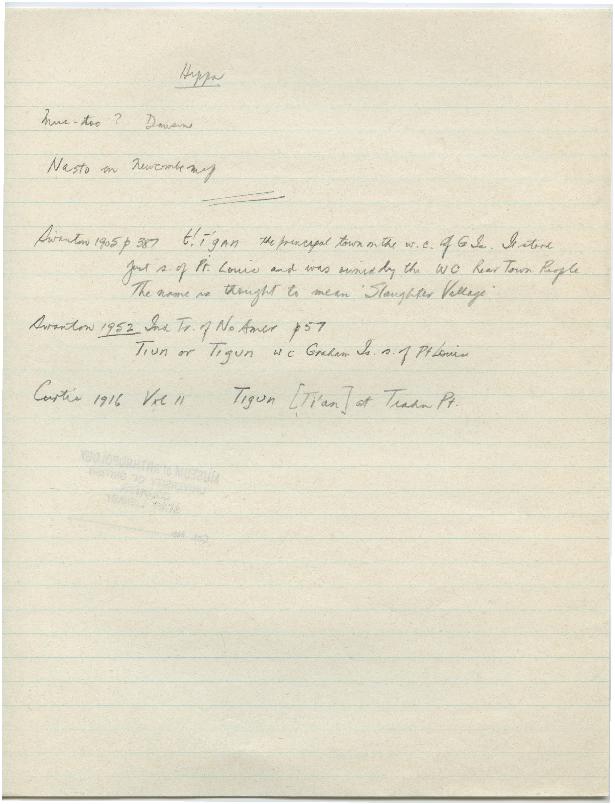 Hippa
Muc-too? Dawson
Nasto on Newcombe map
Swanton 1905 p 387 t!īgan the principal town on the w.c. of G Is. It stood
just s. of Pt. Louis and was owned by the WC Rear Town People
The name is thought to mean 'Slaughter Village'
Swanton 1952 Ind Tr. of No Amer p57
Tiun or Tigun w c Graham Is. s. of Pt Louis
Curtis 1916 Vol 11 Tigun [Ti'an] at Tiahn Pt.
MUSEUM of ANTHROPOLOGY
UNIVERSITY OF BRITISH
COLUMBIA